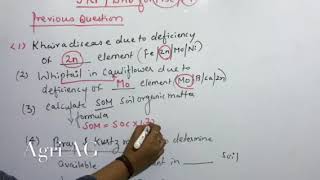 Previous Question
(1) Khaira disease due to deficiency
of Zn element (Fe/Zn/Mo/Ni)
(2) Whiptail in cauliflower due to
deficiency of Mo element (Mo/B/Ca/Zn)
(3) Calculate SOM soil organic matter
formula
SOM = SOC X 1.72
(4) Bray & Kurtz determine
available ment in ____ Soil
Agri AG